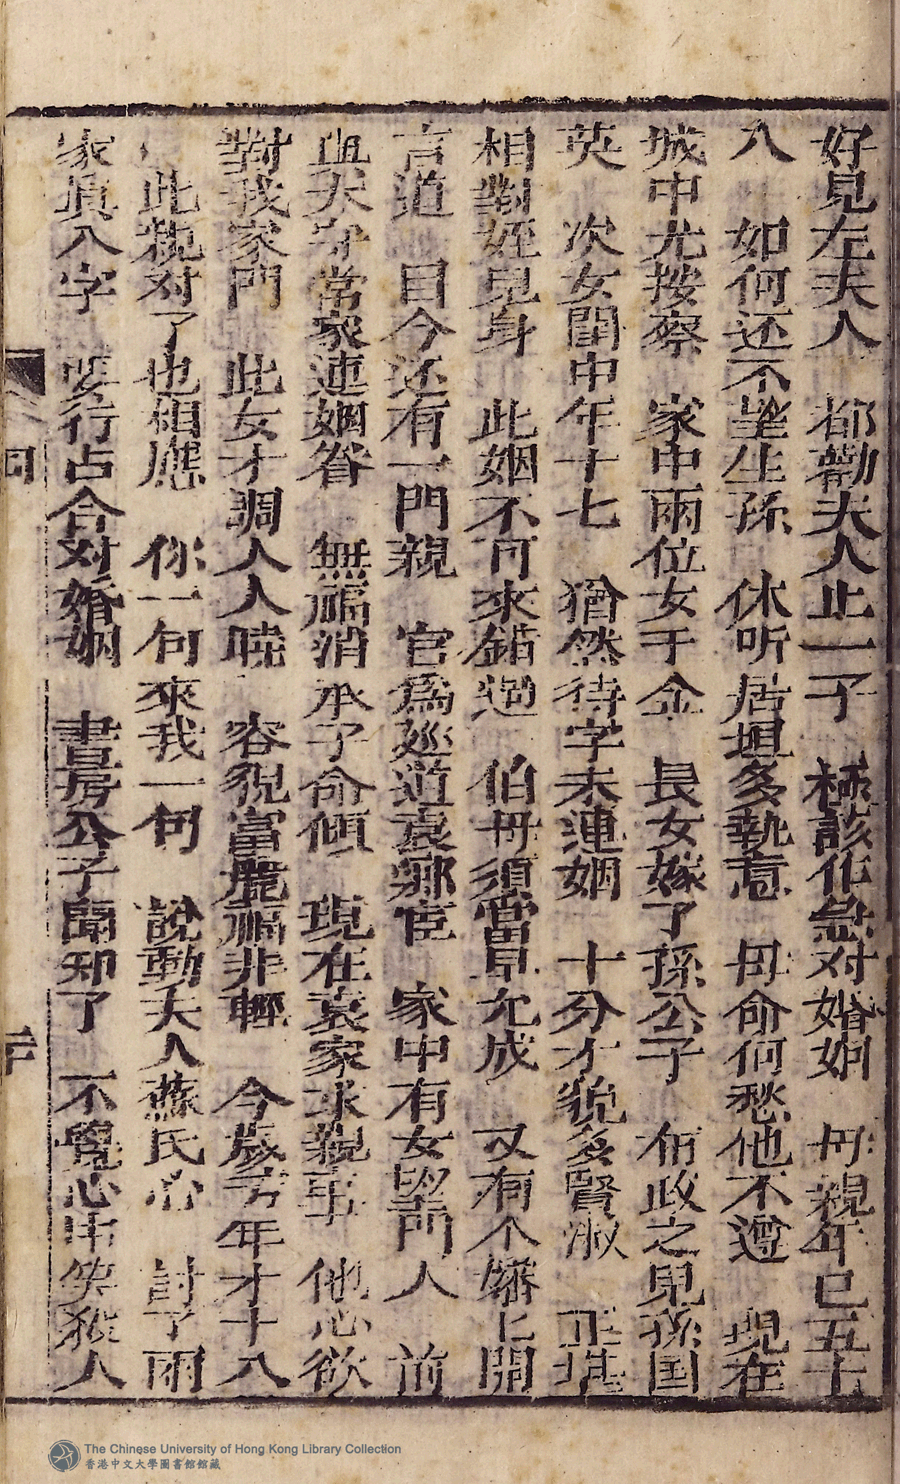 好見左夫人　都勸夫人止一子　極該化急对婚姻　母親年已五十
八　如何还不望生孫　休听居垣多執意　母命何愁他不遵　現在
城中尤按察　家中兩位女于金　長女嫁了孫公子　布政之兒孫国
英　次女閨中年十七　猶然待字未連姻　十分才貌多賢淑　正堪
相對姪兒身　此姻不可來錯過　伯母須當早允成　又有个媒上開
言道　目今还有一門親　官為廵道袁鄉宦　家中有女望門人　前
血夫守當家連姻眷　無福消承了命傾　現在袁家求親事　他心欲
對我家門　此女才調人人曉　容貌富麗福非輕　今歲方年才十八
此親对了也相應　你一句來我一句　說動夫人蘇氏心　討了兩
家真八字　要行占合对婚姻　書房公子聞知了　不覺心中笑煞人
四
二十
The Chinese University of Hong Kong Library Collection
香港中文大學圖書館館藏